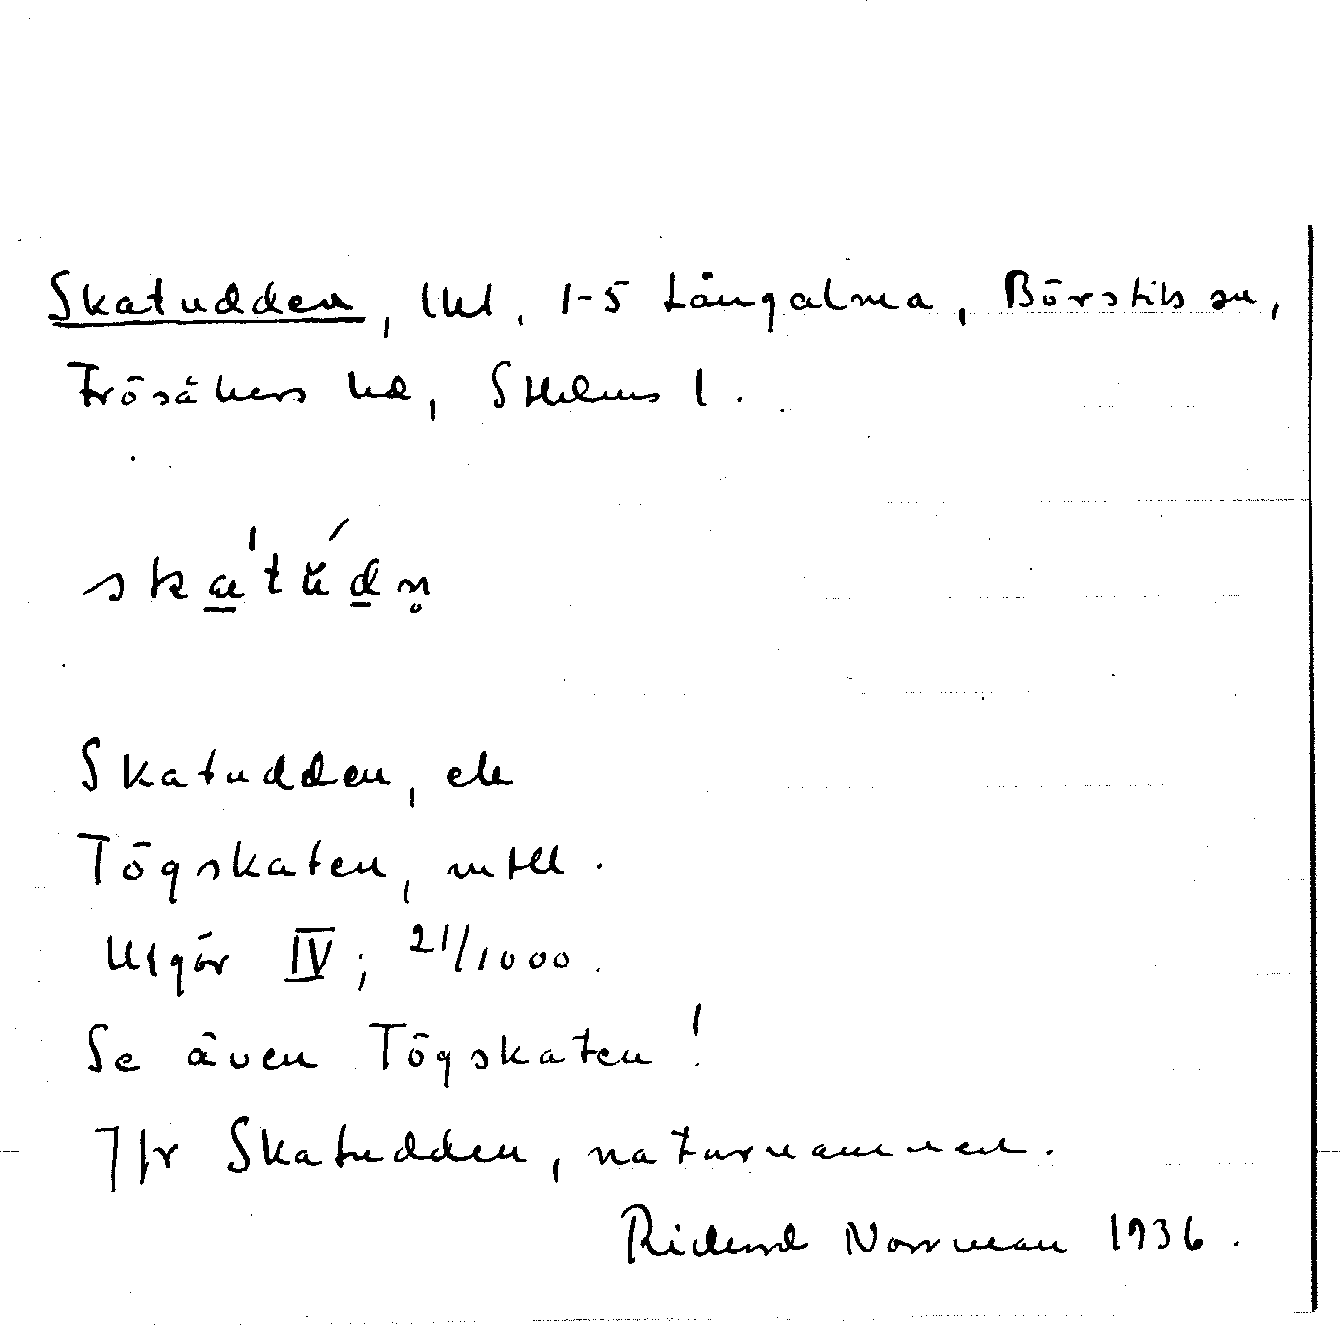 Skatudden, lht, 1-5 Långalma, Börstils sn,
Frösåkers hd, Sthlms l.
ska'túdn̥
Skatudden, ell
Tögskaten, mtll.
Utgör IV; 21/1000.
Se även Tögskaten!
Jfr Skatudden, naturnamnen.
Rickard Norrman 1936.